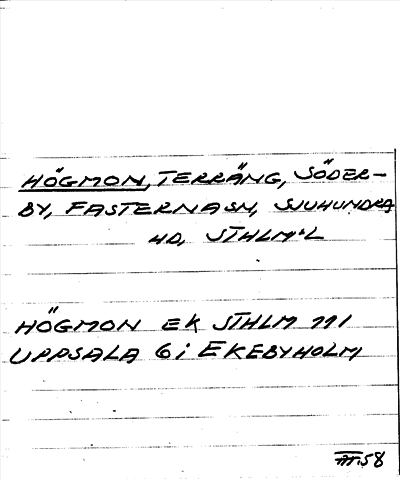 HÖGMON, TERRÄNG, SÖDER-
BY, FASTERNA SN, SJUHUNDRA
HD, STHLMS L
HÖGMON EK STHLM 111
UPPSALA 6 i EKEBYHOLM
58